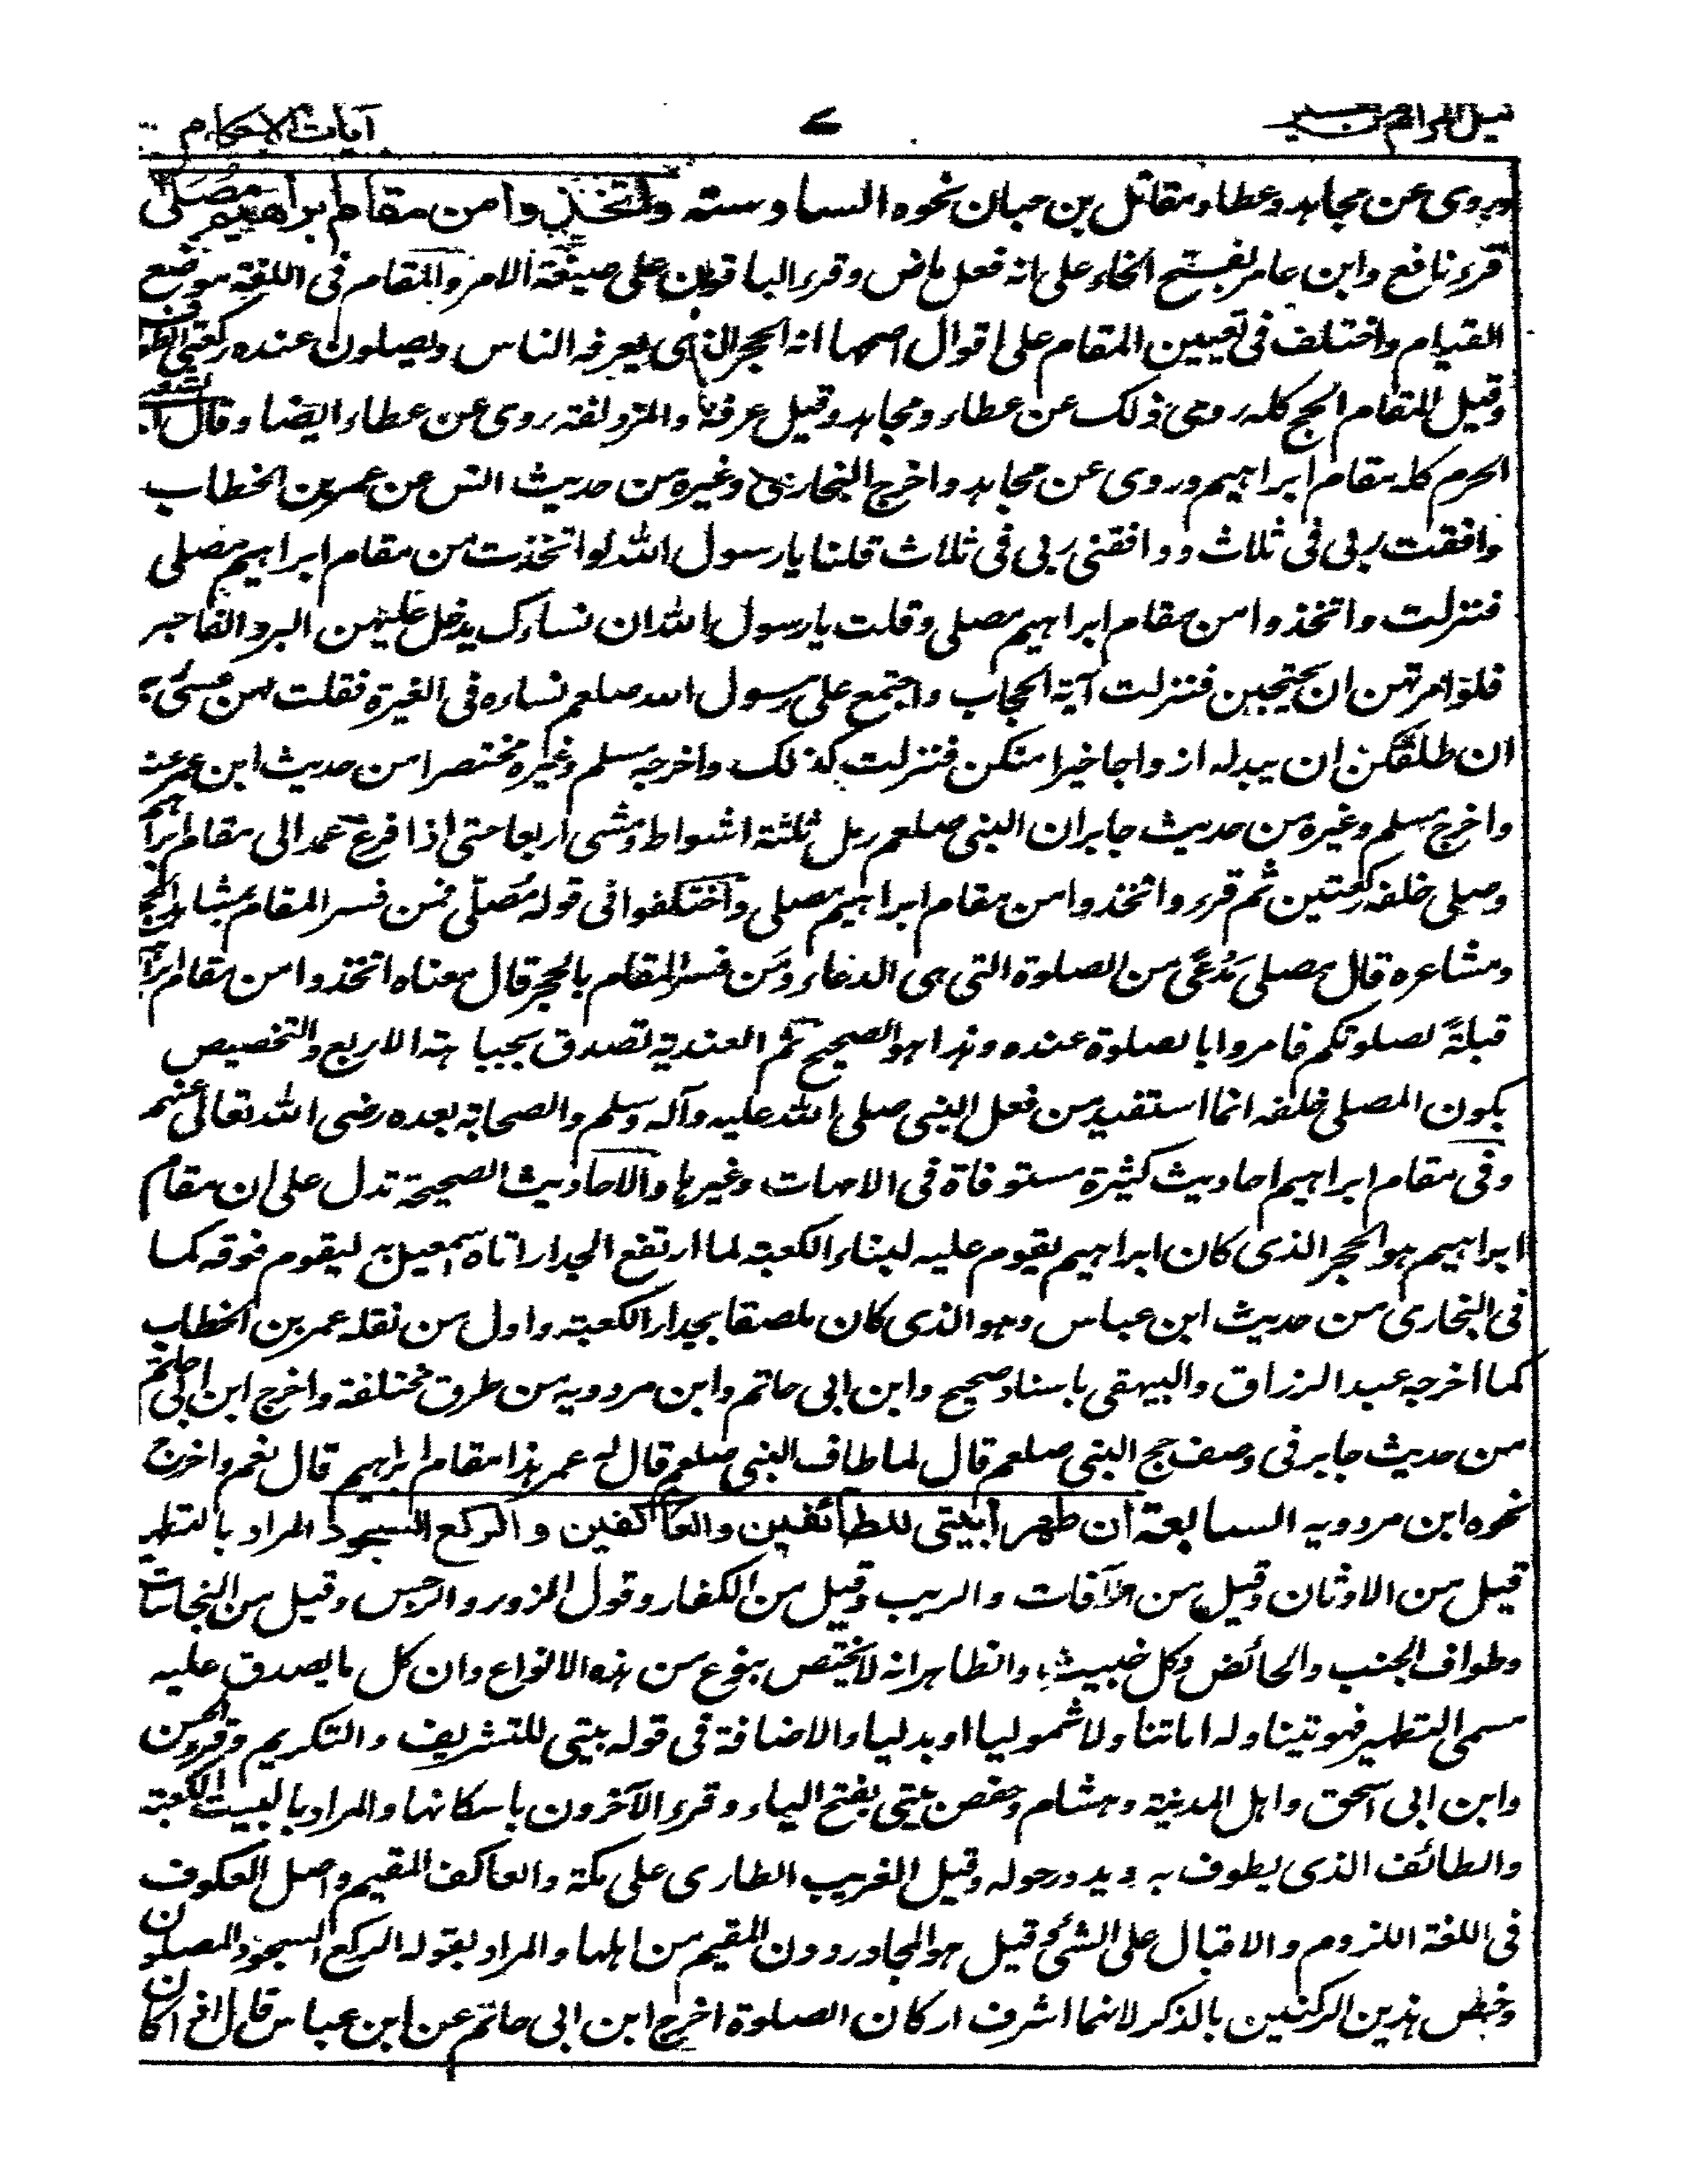 نيل المرام من تفسير ٧ آيات الاحكام
وروى عن مجاهد وعطاء ومقاتل بن حبان نحوه السادسة واتخذوا من مقام ابراهيم مصلى
قرء نافع وابن عامر بفتح الخاء على انه فعل ماض وقرء الباقون على صيغة الامر والمقام فى اللغة موضع
القيام واختلف فى تعيين المقام على اقوال اصحها انه الحجر الذى يعرفه الناس ويصلون عنده ركعتى الطواف
وقيل المقام الحج كله روى ذلك عن عطاء ومجاهد وقيل عرفة والمزدلفة روى عن عطاء ايضا وقال الشعبى
الحرم كله مقام ابراهيم وروى عن مجاهد واخرج البخارى وغيره من حديث انس عن عمر بن الخطاب
وافقت ربى فى ثلاث ووافقنى ربى فى ثلاث قلنا يا رسول الله لو اتخذت من مقام ابراهيم مصلى
فنزلت واتخذوا من مقام ابراهيم مصلى وقلت يا رسول الله ان نساءك يدخل عليهن البر والفاجر
فلو امرتهن ان يحتجبن فنزلت آية الحجاب واجتمع على رسول الله صلعم نساءه فى الغيرة فقلت لهن عسى ربه
ان طلقكن ان يبدله ازواجا خيرا منكن فنزلت كذلك واخرجه مسلم وغيره مختصرا من حديث ابن عمر عنه
واخرج مسلم وغيره من حديث جابر ان النبى صلعم رمل ثلثة اشواط ومشى اربعا حتى اذا فرغ عمد الى مقام ابراهيم
وصلى خلفه ركعتين ثم قرء واتخذوا من مقام ابراهيم مصلى واختلفوا فى قوله مصلّى فمن فسر المقام بمشاهد الحج
ومشاعره قال مصلى مدعًى من الصلوة التى هى الدعاء ومن فسر المقام بالحجر قال معناه اتخذوا من مقام ابراهيم
قبلةً لصلوتكم فامروا بالصلوة عنده وهذا هو الصحيح ثم العندية تصدق بجهاته الاربع والتخصيص
بكون المصلى خلفه انما استفيد من فعل النبى صلى الله عليه وآله وسلم والصحابة بعده رضى الله تعالى عنهم
وفى مقام ابراهيم احاديث كثيرة مستوفاة فى الامهات وغيرها والاحاديث الصحيحة تدل على ان مقام
ابراهيم هو الحجر الذى كان ابراهيم يقوم عليه لبناء الكعبة لما ارتفع الجدار اتاه اسمعيل به ليقوم فوقه كما
فى البخارى من حديث ابن عباس وهو الذى كان ملصقا بجدار الكعبة واول من نقله عمر بن الخطاب
كما اخرجه عبد الرزاق والبيهقى باسناد صحيح وابن ابى حاتم وابن مردويه من طرق مختلفة واخرج ابن ابى حاتم
من حديث جابر فى وصف حج النبى صلعم قال لما طاف النبى صلعم قال له عمر هذا مقام ابراهيم قال نعم واخرج
نحوه ابن مردويه السابعة ان طهرا بيتى للطائفين والعاكفين والركع السجود المراد بالتطهير
قيل من الاوثان وقيل من الآفات والريب وقيل من الكفار وقول الزور والرجس وقيل من النجاسات
وطواف الجنب والحائض وكل خبيث والظاهر انه لا يختص بنوع من هذه الانواع وان كل ما يصدق عليه
مسمى التطهير فهو يتناوله اما تناولا شموليا او بدليا والاضافة فى قوله بيتى للتشريف والتكريم وقرء الحسن
وابن ابى اسحق واهل المدينة وهشام وحفص بيتى بفتح الياء وقرء الآخرون باسكانها والمراد بالبيت الكعبة
والطائف الذى يطوف به ويدور حوله وقيل الغريب الطارى على مكة والعاكف المقيم واصل العكوف
فى اللغة اللزوم والاقبال على الشئ وقيل هو المجاور دون المقيم من اهلها والمراد بقوله الركع السجود المصلون
وخص هذين الركنين بالذكر لانهما اشرف اركان الصلوة اخرج ابن ابى حاتم عن ابن عباس قال اذا كان